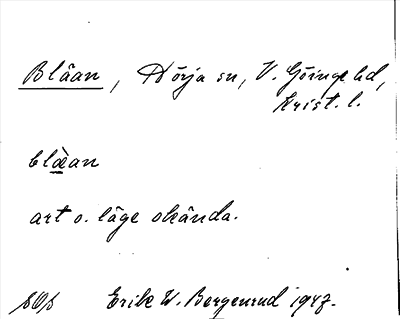 Blåan, Nörja sn, V. Göinge hd,
Krist. l.
blæ̀an
art o. läge okända.
SOS Erik W. Bergenrud 1947.